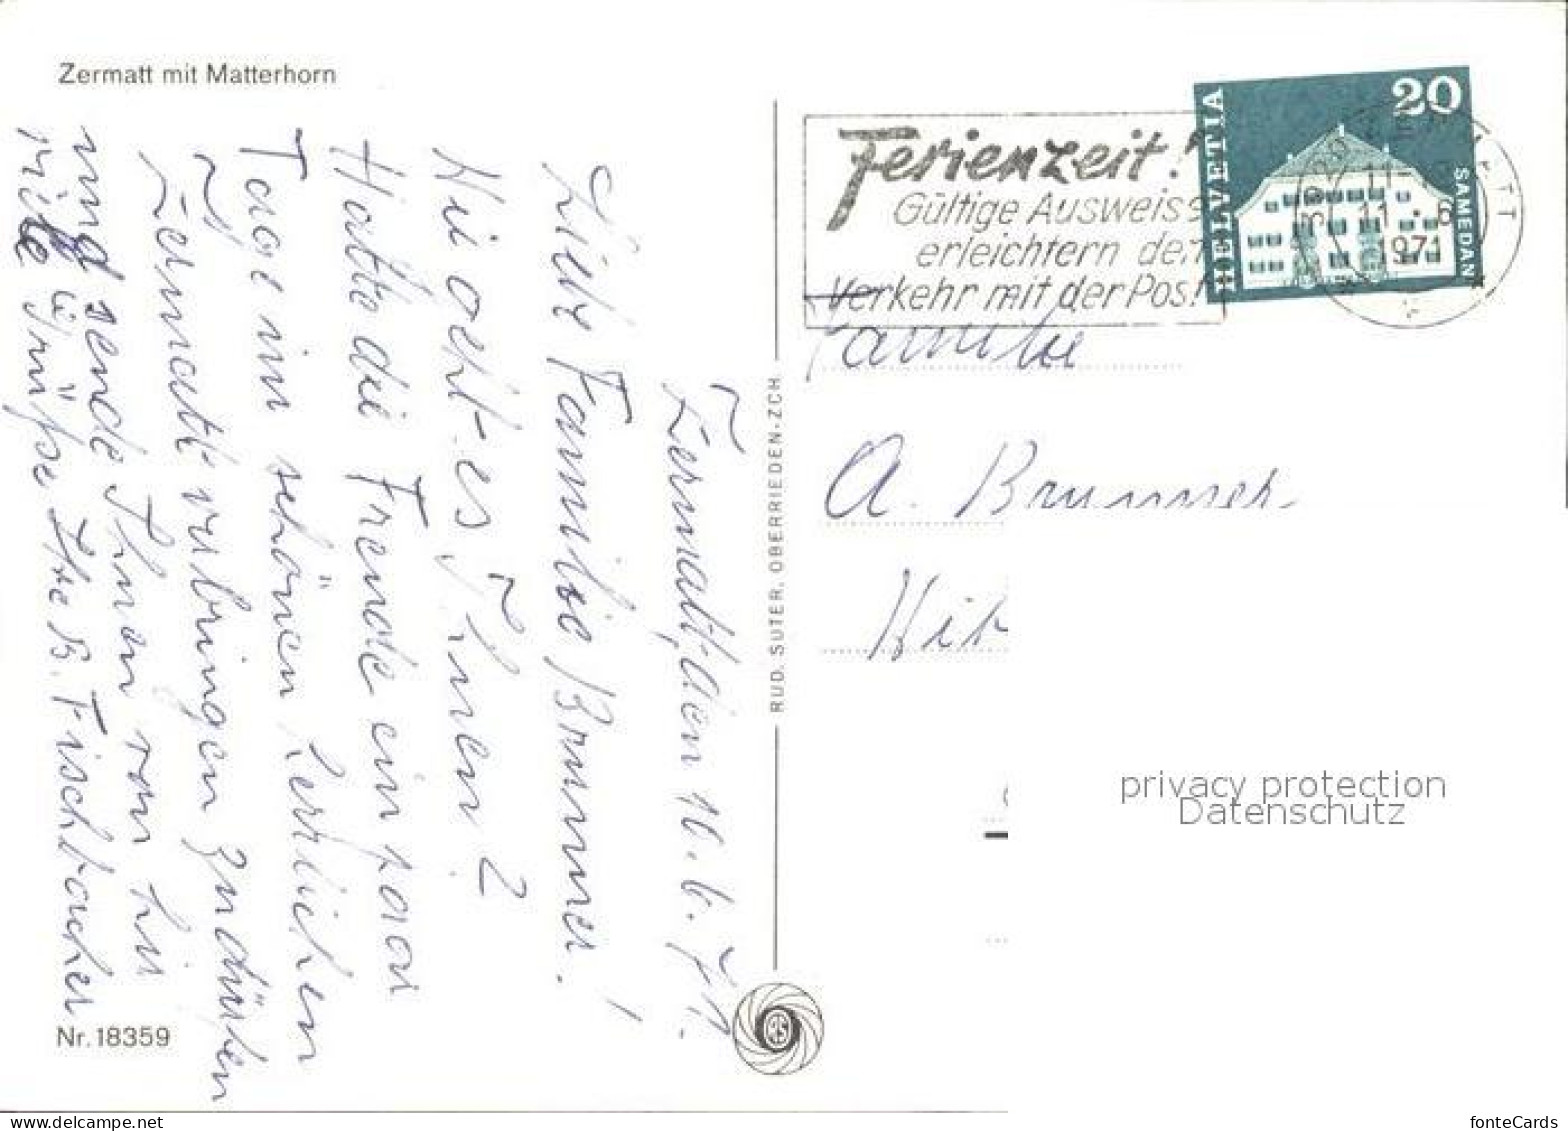 Zermatt mit Matterhorn
Zermatt, den 10.6.71.
Liebe Familie Brunner!
Wie geht es Ihnen?
Hatte die Freude ein paar
Tage im schönen herrlichen
Zermatt verbringen zu dürfen
und sende Ihnen von hir
viele Grüße Ihre B. Fischbacher
Nr. 18359
RUD. SUTER, OBERRIEDEN-ZCH.
Ferienzeit!
Gültige Ausweise
erleichtern den
Verkehr mit der Post
HELVETIA
20
SAMEDAN
3920 ZERMATT
11.6
1971
Familie
A. Brunner
privacy protection
Datenschutz
fonteCards